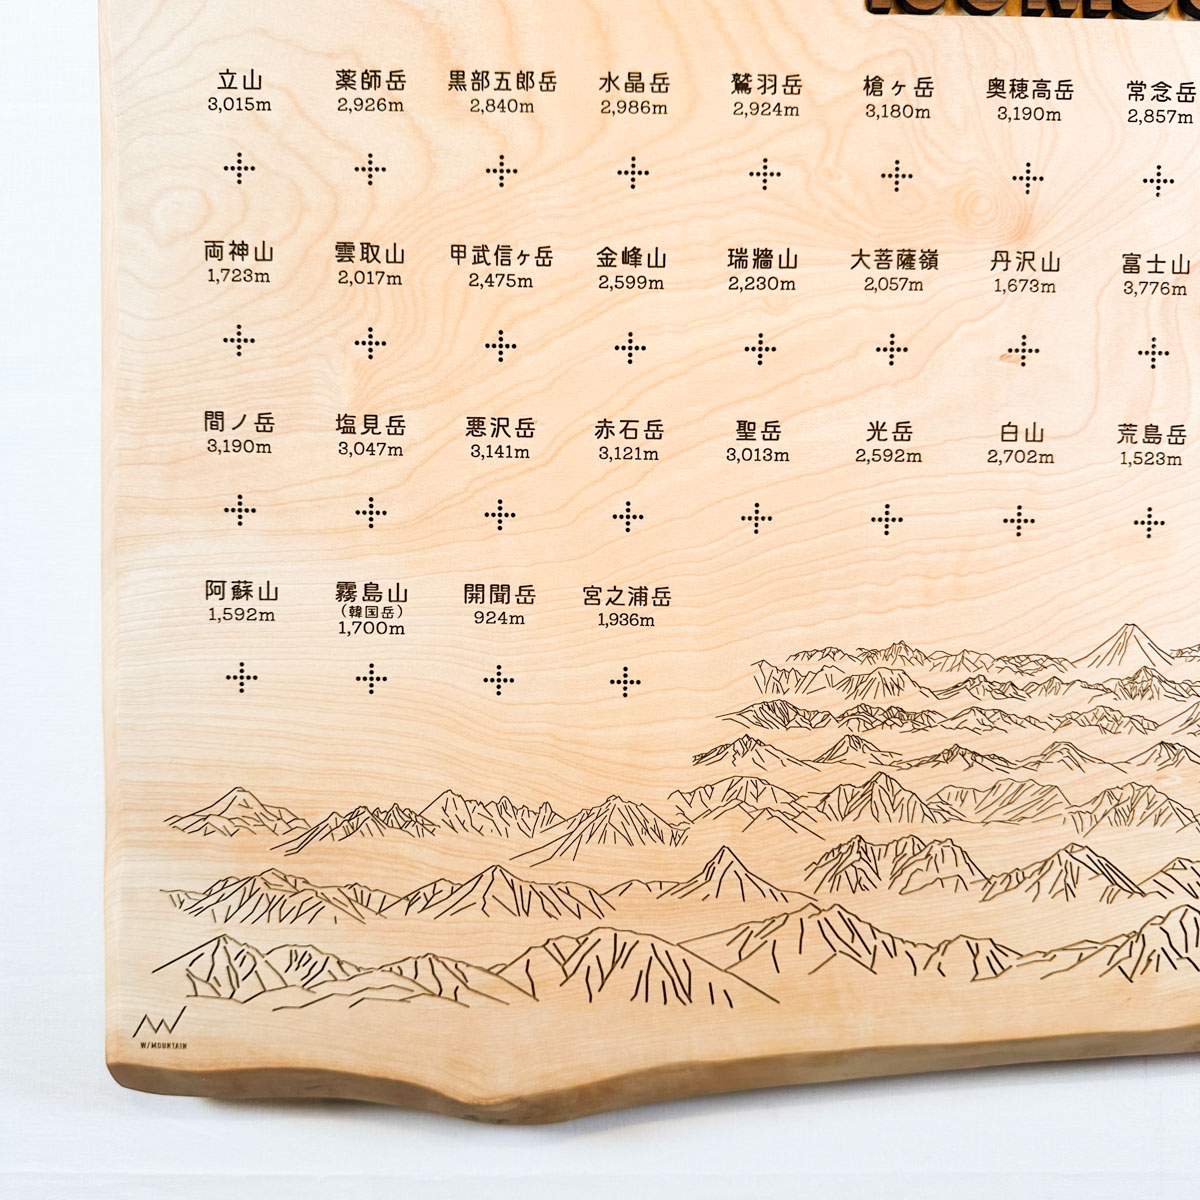 立山 薬師岳 黒部五郎岳 水晶岳 鷲羽岳 槍ヶ岳 奥穂高岳 常念岳
3,015m 2,926m 2,840m 2,986m 2,924m 3,180m 3,190m 2,857m
両神山 雲取山 甲武信ヶ岳 金峰山 瑞牆山 大菩薩嶺 丹沢山 富士山
1,723m 2,017m 2,475m 2,599m 2,230m 2,057m 1,673m 3,776m
間ノ岳 塩見岳 悪沢岳 赤石岳 聖岳 光岳 白山 荒島岳
3,190m 3,047m 3,141m 3,121m 3,013m 2,592m 2,702m 1,523m
阿蘇山 霧島山 開聞岳 宮之浦岳
(韓国岳)
1,592m 1,700m 924m 1,936m
W/MOUNTAIN